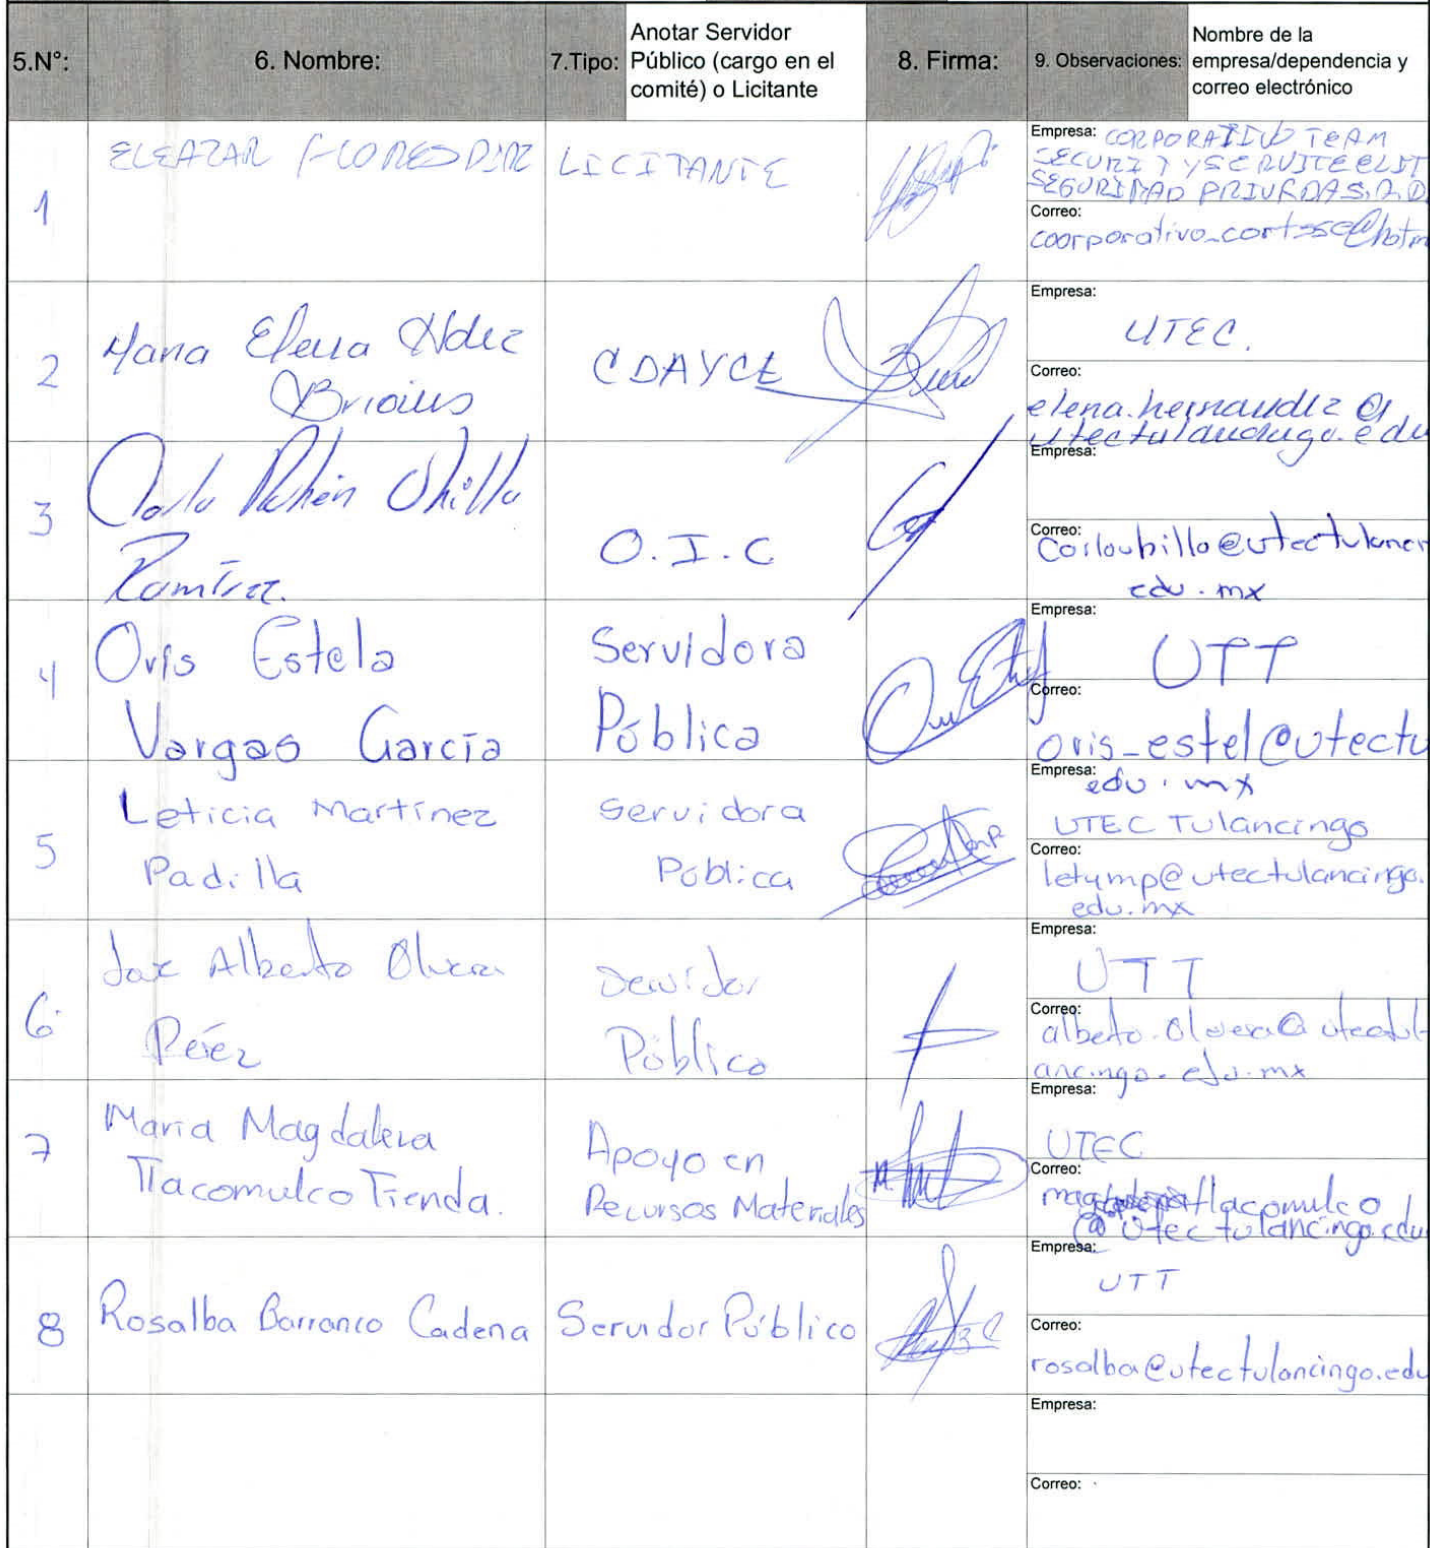 5.N°:
6. Nombre:
7.Tipo:
Anotar Servidor
Público (cargo en el
comité) o Licitante
8. Firma:
9. Observaciones:
Nombre de la
empresa/dependencia y
correo electrónico
1
ELEAZAR FLORES DIAZ
LICITANTE
Empresa: CORPORATIVO TEAM
SECURITY SERVITE ELIT
SEGURIDAD PRIVADA S.A.D
Correo:
coorporativo_cortsse@hotm
2
Maria Elena Hdez
Briones
CDAYCE
Empresa:
UTEC.
Correo:
elena.hernandez@
utectulancingo.edu
3
Carlo Rubén Ubilla
Ramírez.
O.I.C
Empresa:
Correo:
carloubilla@utectulancin
edu.mx
4
Oris Estela
Vargas García
Servidora
Pública
Empresa:
UTT
Correo:
oris_estel@utectu
edu.mx
5
Leticia Martínez
Padilla
Servidora
Pública
Empresa:
UTEC Tulancingo
Correo:
letymp@utectulancingo.
edu.mx
6
José Alberto Olvera
Pérez
Servidor
Público
Empresa:
UTT
Correo:
alberto.olvera@utectul
ancingo.edu.mx
7
María Magdalena
Tlacomulco Tienda.
Apoyo en
Recursos Materiales
Empresa:
UTEC
Correo:
tlacomulco
@utectulancingo.edu
8
Rosalba Barranco Cadena
Servidor Público
Empresa:
UTT
Correo:
rosalba@utectulancingo.edu
Empresa:
Correo: